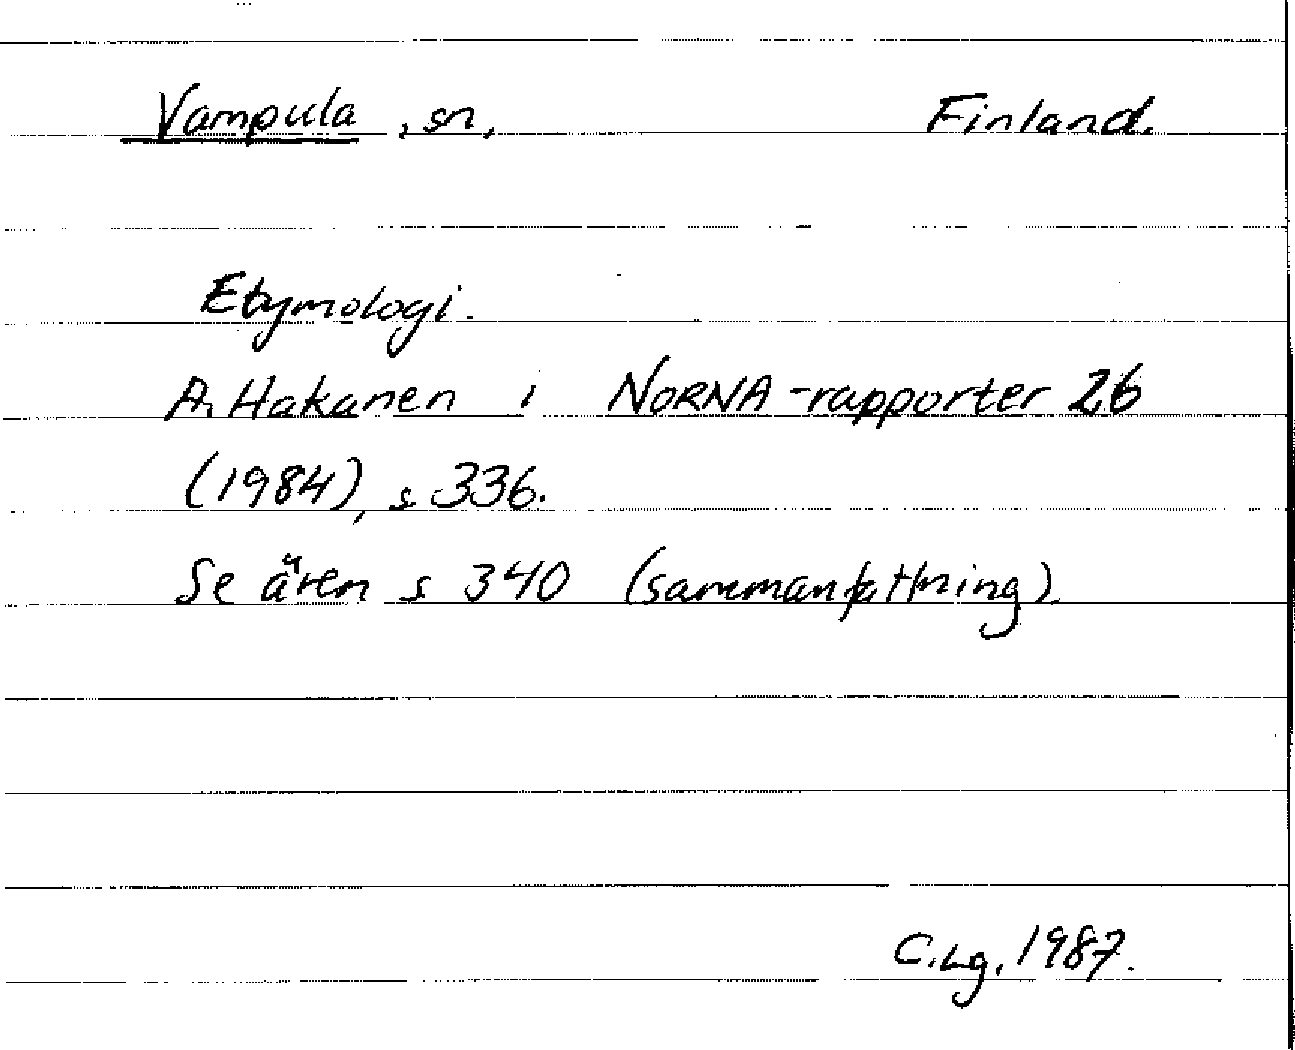 Vampula, sn, Finland.
Etymologi.
A. Hakanen i NORNA-rapporter 26
(1984), s 336.
Se även s 340 (sammanfattning).
C.Lg. 1987.